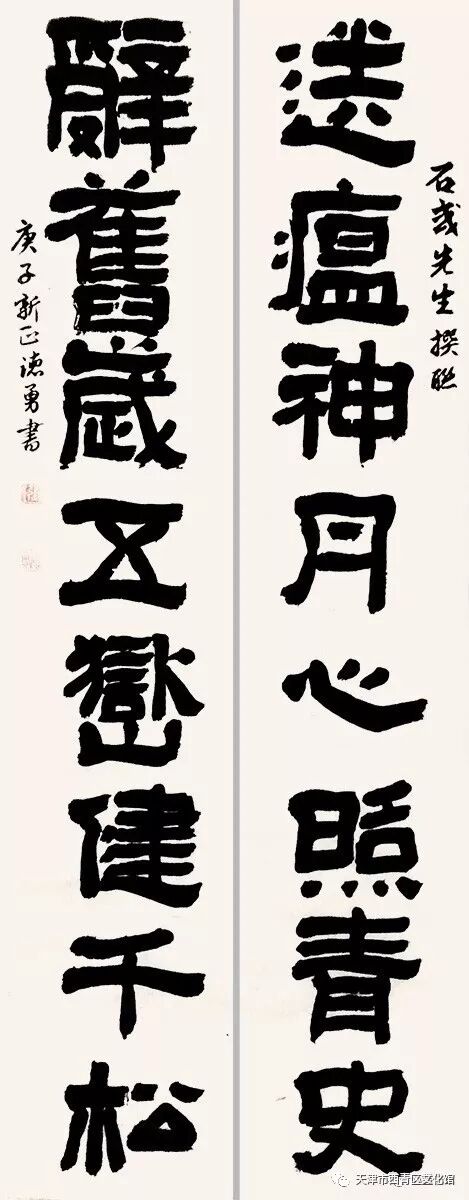 石 先生撰联
送瘟神丹心照青史
辭舊歲五嶽健千松
庚子新正德勇書
天津市西青区文化馆